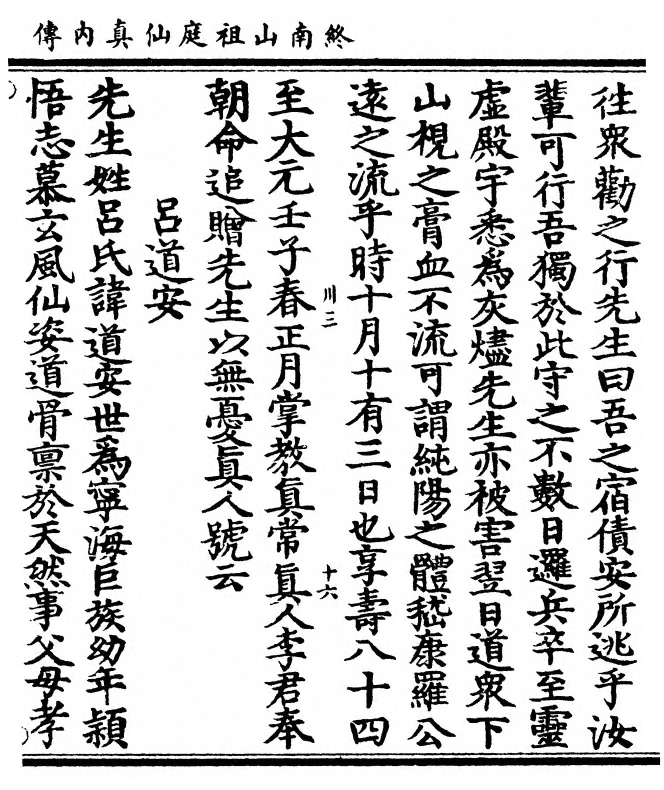 終南山祖庭仙真內傳
往眾勸之行先生曰吾之宿債安所逃乎汝
輩可行吾獨於此守之不數日邏兵卒至靈
虛殿宇悉為灰燼先生亦被害翌日道眾下
山視之膏血不流可謂純陽之體嵇康羅公
遠之流乎時十月十有三日也享壽八十四
川三
十六
至大元壬子春正月掌教真常真人李君奉
朝命追贈先生以無憂真人號云
呂道安
先生姓呂氏諱道安世為寧海巨族幼年穎
悟志慕玄風仙姿道骨稟於天然事父母孝